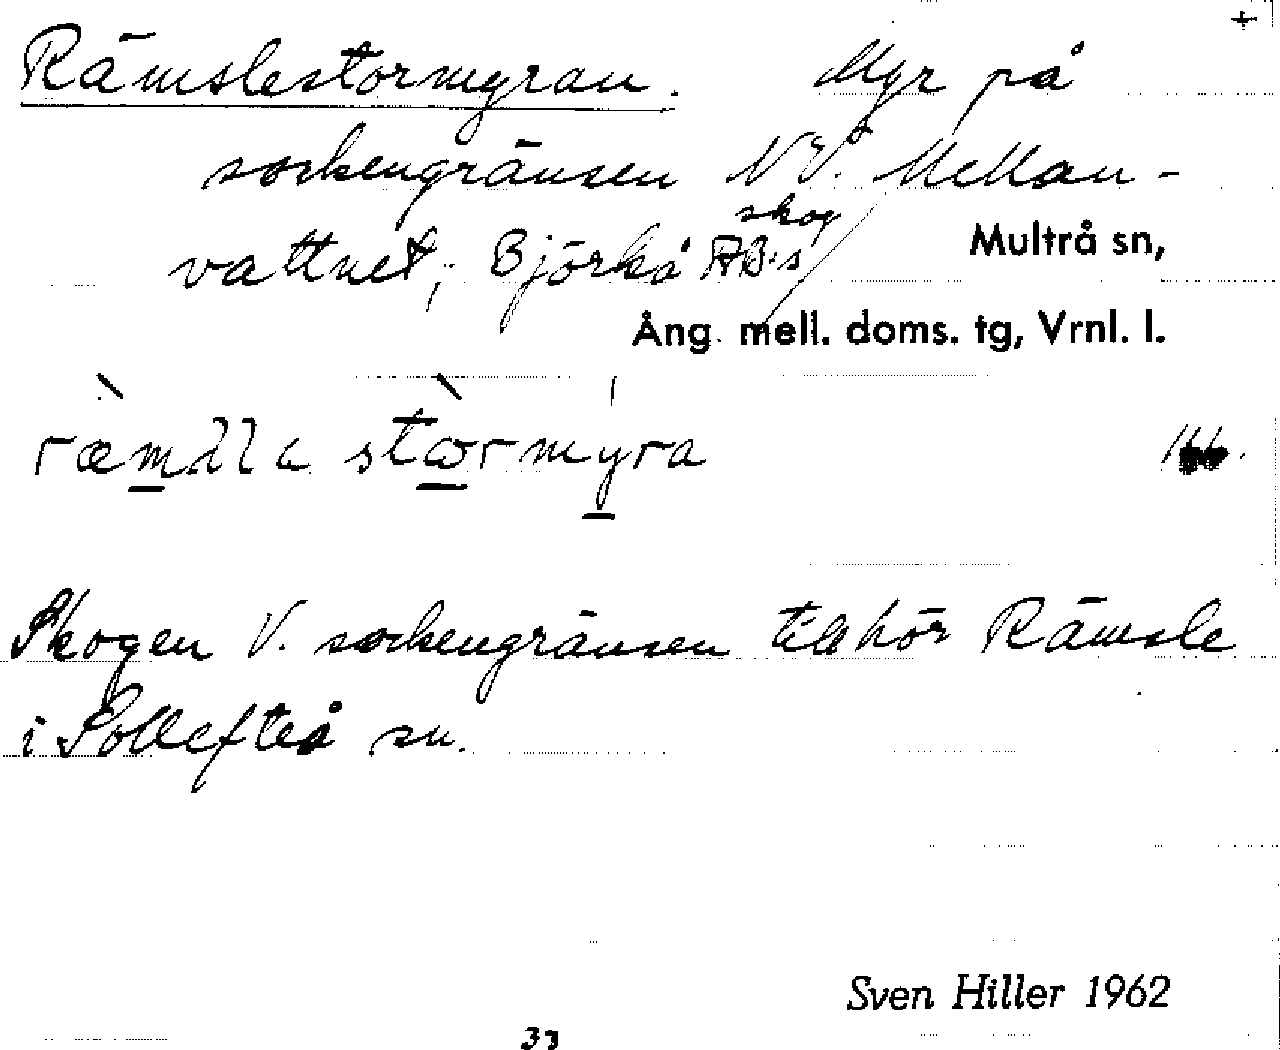 +
Rämslestormyran. Myr på
sockengränsen NV. Mellan-
vattnet; Björkå AB:s skog
Multrå sn,
Ång. mell. doms. tg, Vrnl. l.
stormyra
Skogen V. sockengränsen tillhör Rämsle
i Sollefteå sn.
Sven Hiller 1962
33